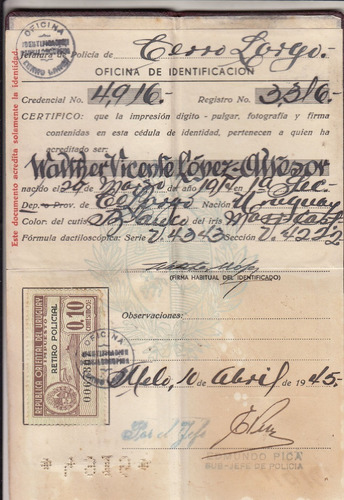 OFICINA
IDENTIFICADORA
CERRO LARGO
Jefatura de Policía de Cerro Largo.
OFICINA DE IDENTIFICACION
Credencial No. 4,916. Registro No. 3,316.
CERTIFICO: que la impresión dígito - pulgar, fotografía y firma
contenidas en esta cédula de identidad, pertenecen a quien ha
acreditado ser:
Walther Vicente López
nacido el 20 de Marzo del año 19 en
Dep. o Prov. de C. Largo Nación Uruguay
Color del cutis Blanco del iris
Fórmula dactiloscópica: Serie V.4343 Sección V.4222
(FIRMA HABITUAL DEL IDENTIFICADO)
Observaciones:
Melo, 10 de Abril de 1945.
Por el Jefe
EDMUNDO PICA
SUB-JEFE DE POLICIA
Este documento acredita solamente la identidad.
REPUBLICA ORIENTAL DEL URUGUAY
RETIRO POLICIAL
0.10
CENTESIMOS
OFICINA